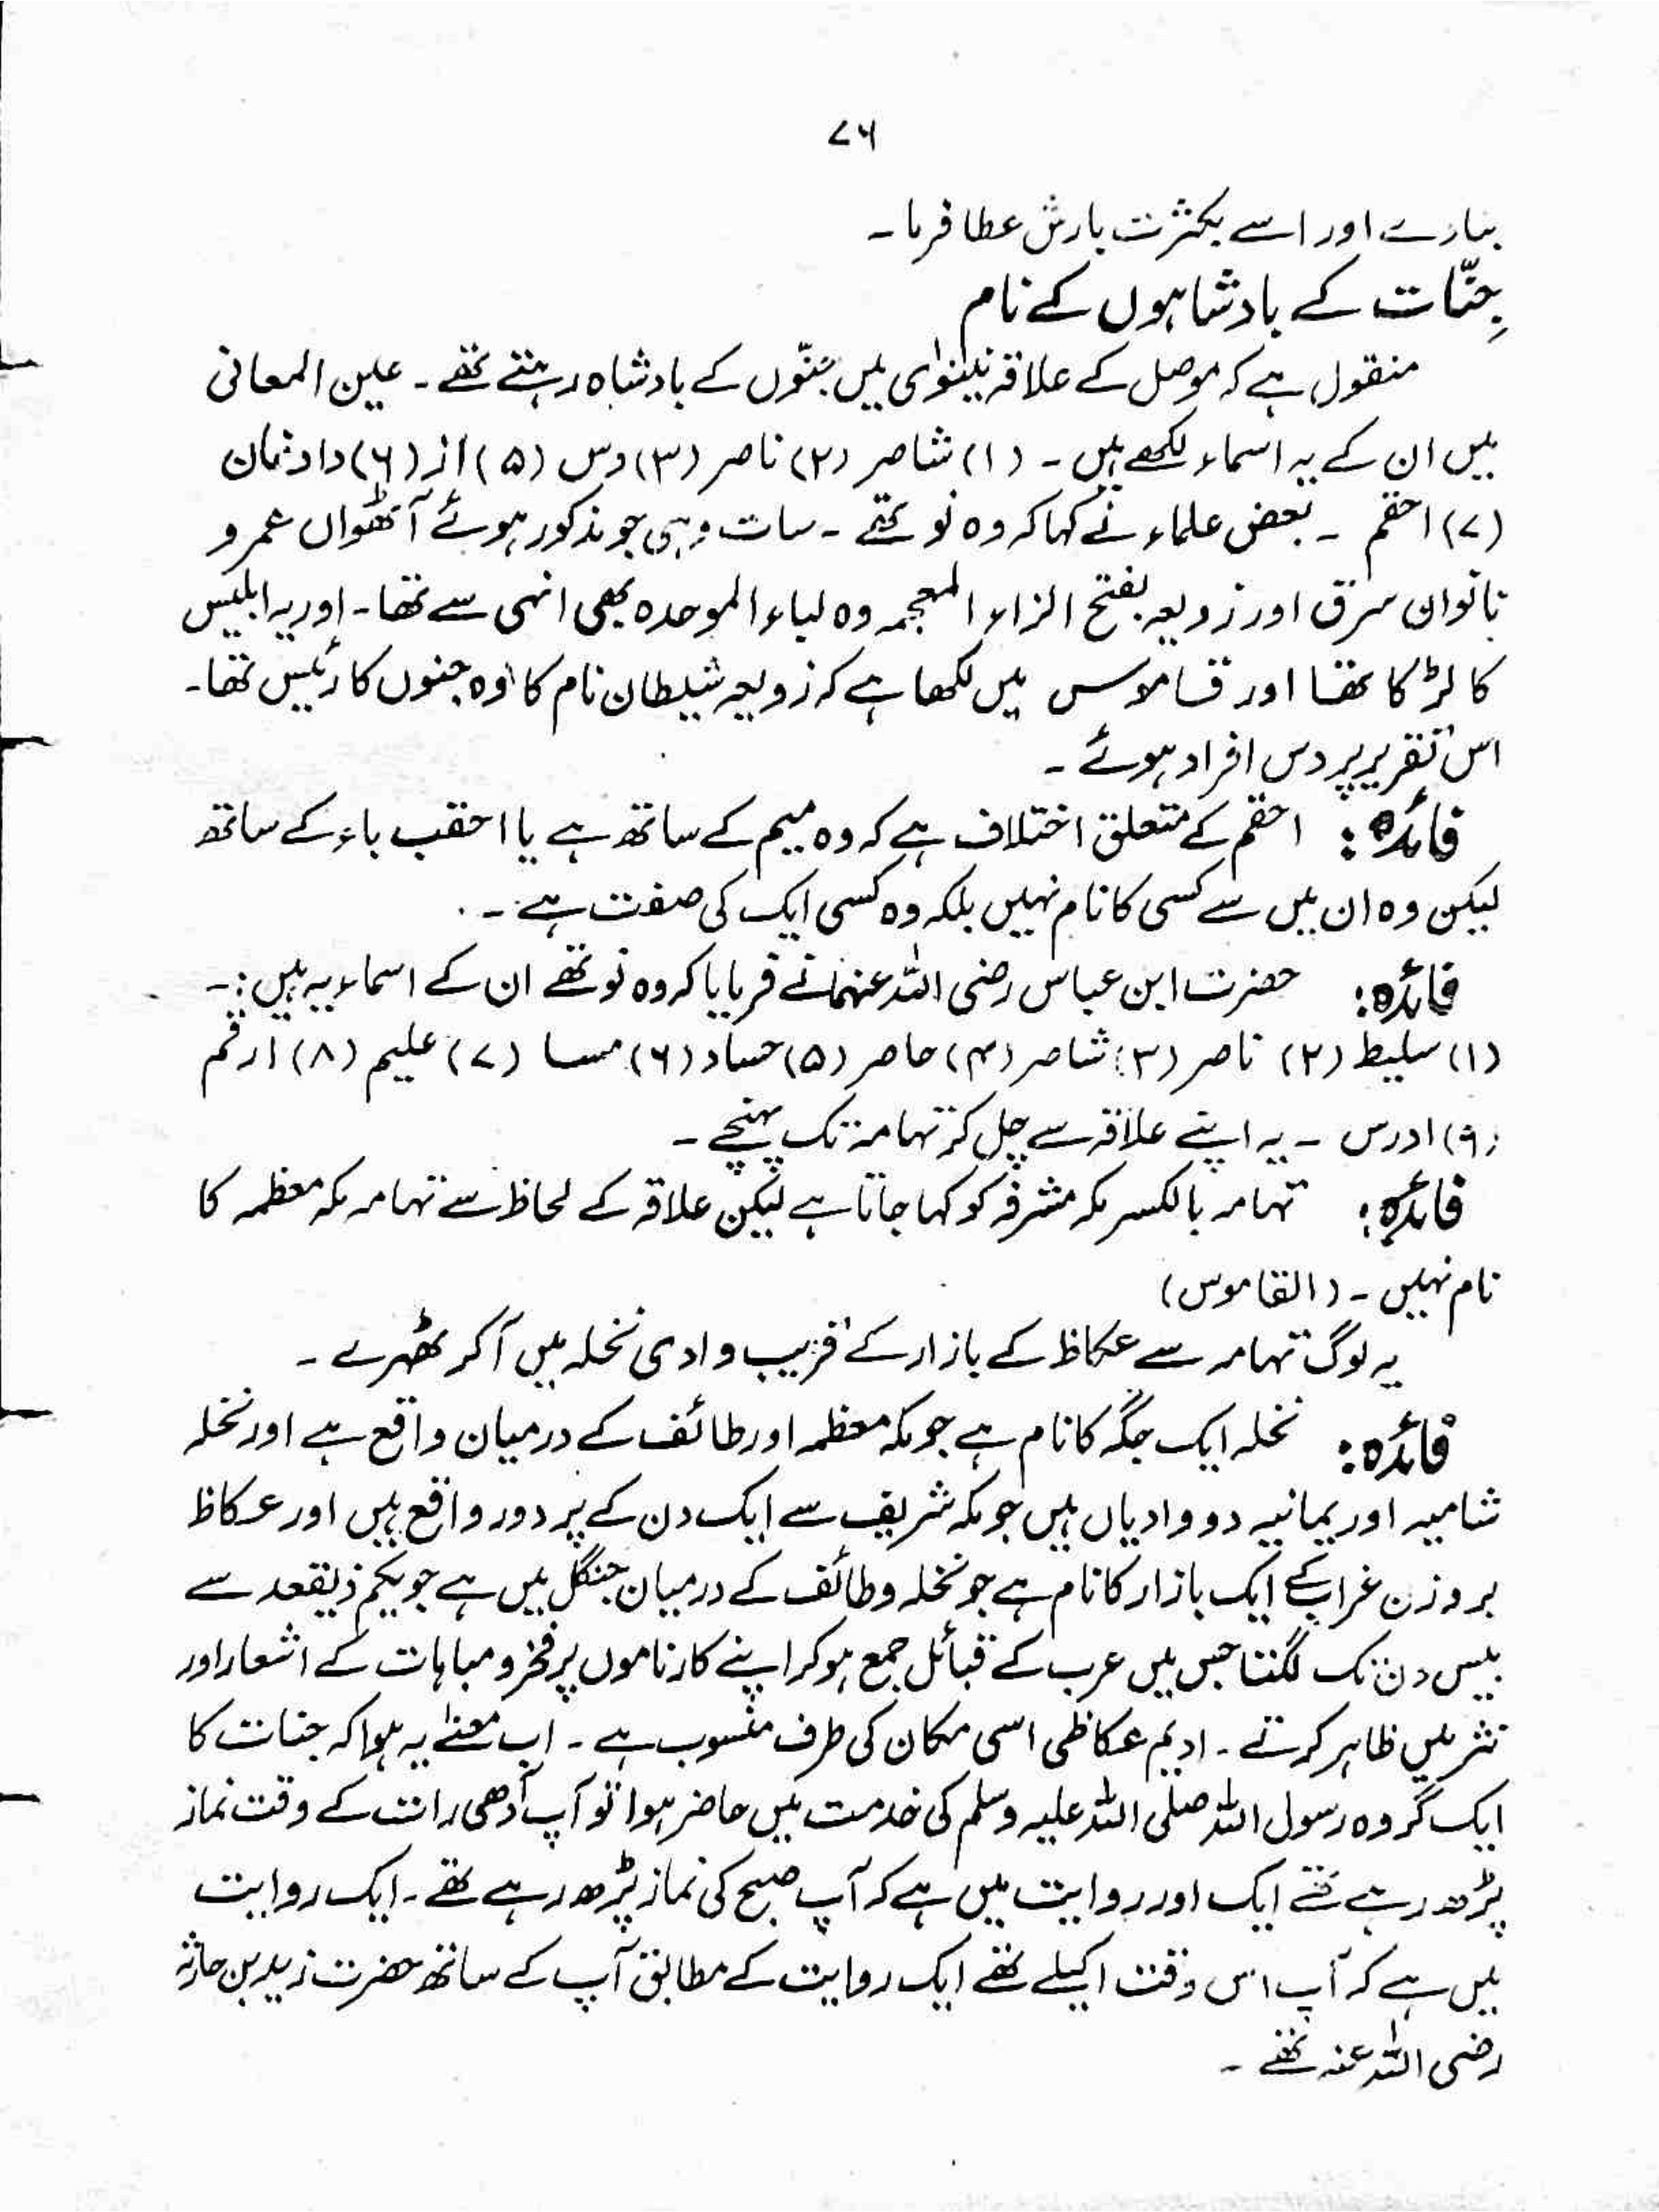 ۷۶
بنادے اور اسے بکثرت بارش عطا فرما ۔
جنّات کے بادشاہوں کے نام
منقول ہے کہ موصل کے علاقہ نینوٰی میں جنّوں کے بادشاہ رہتے تھے ۔ عین المعانی
میں ان کے یہ اسماء لکھے ہیں ۔ (۱) شاصر (۲) ناصر (۳) دس (۵) از (۶) داد نمان
(۷) احقم ۔ بعض علماء نے کہا کہ وہ نو تھے ۔ سات وہی جو مذکور ہوئے آٹھواں عمرو
نانواں سرق اور زوبعہ بفتح الزاء المعجمہ وہ لباء الموحدہ بھی انہی سے تھا ۔ اور یہ ابلیس
کا لڑکا تھا اور قاموس میں لکھا ہے کہ زوبعہ شیطان نام کا وہ جنوں کا رئیس تھا ۔
اس تقریر پر دس افراد ہوئے ۔
فائدہ : احقم کے متعلق اختلاف ہے کہ وہ میم کے ساتھ ہے یا احقب باء کے ساتھ
لیکن وہ ان میں سے کسی کا نام نہیں بلکہ وہ کسی ایک کی صفت ہے ۔
فائدہ : حضرت ابن عباس رضی اللہ عنہما نے فرمایا کہ وہ نو تھے ان کے اسماء یہ ہیں :۔
(۱) سلیط (۲) ناصر (۳) شاصر (۴) حاصر (۵) حساد (۶) مسا (۷) علیم (۸) ارقم
(۹) ادرس ۔ یہ اپنے علاقہ سے چل کر تہامہ تک پہنچے ۔
فائدہ : تہامہ بالکسر مکہ مشرفہ کو کہا جاتا ہے لیکن علاقہ کے لحاظ سے تہامہ مکہ معظمہ کا
نام نہیں ۔ (القاموس)
یہ لوگ تہامہ سے عکاظ کے بازار کے قریب وادی نخلہ میں آکر ٹھہرے ۔
فائدہ : نخلہ ایک جگہ کا نام ہے جو مکہ معظمہ اور طائف کے درمیان واقع ہے اور نخلہ
شامیہ اور یمانیہ دو وادیاں ہیں جو مکہ شریف سے ایک دن کے پر دور واقع ہیں اور عکاظ
بروزن غراب کے ایک بازار کا نام ہے جو نخلہ و طائف کے درمیان جنگل میں ہے جو یکم ذیقعد سے
بیس دن تک لگتا جس میں عرب کے قبائل جمع ہو کر اپنے کارناموں پر فخر و مباہات کے اشعار اور
نثر میں ظاہر کرتے ۔ ادیم عکاظی اسی مکان کی طرف منسوب ہے ۔ اب معنے یہ ہوا کہ جنات کا
ایک گروہ رسول اللہ صلی اللہ علیہ وسلم کی خدمت میں حاضر ہوا تو آپ آدھی رات کے وقت نماز
پڑھ رہے تھے ایک اور روایت میں ہے کہ آپ صبح کی نماز پڑھ رہے تھے ۔ ایک روایت
میں ہے کہ آپ اس وقت اکیلے تھے ایک روایت کے مطابق آپ کے ساتھ حضرت زید بن حارثہ
رضی اللہ عنہ تھے ۔